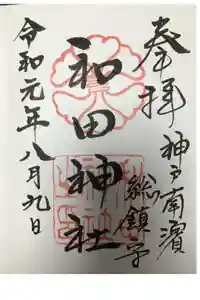 奉拝
神戸南濱
総鎮守
和田神社
令和元年八月九日